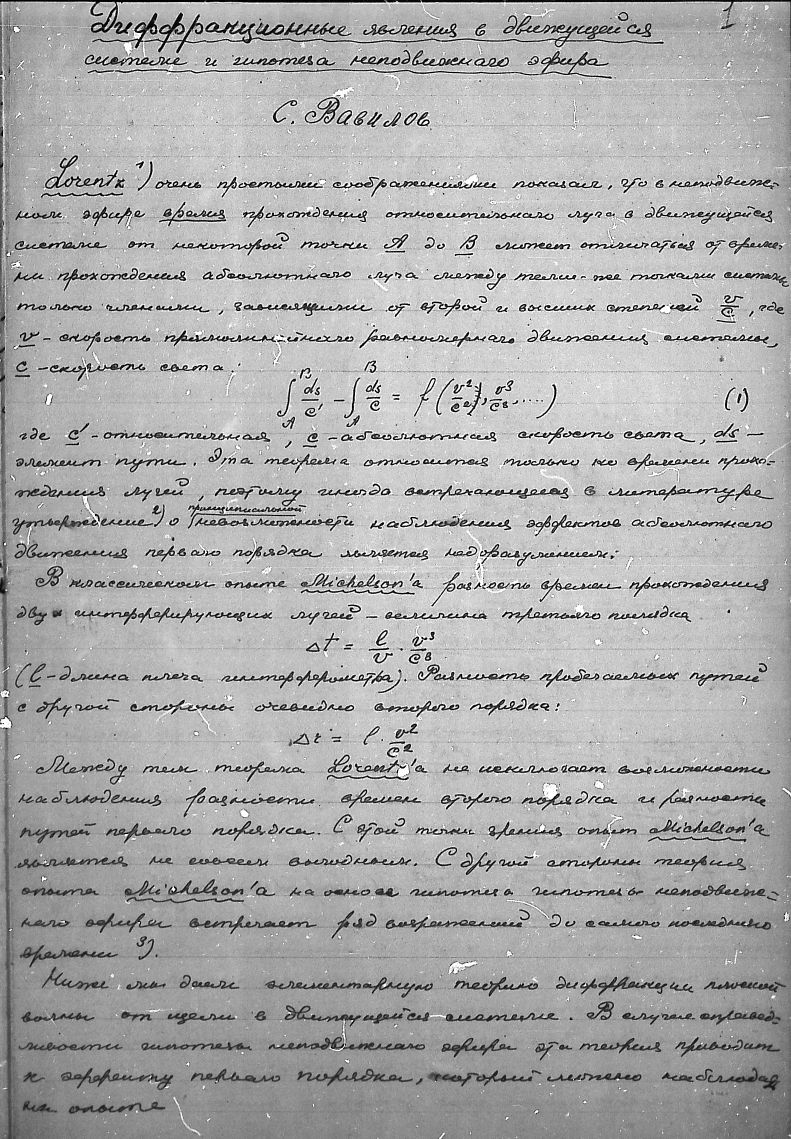 1
Диффракционные явления в движущейся
системе и гипотеза неподвижнаго эфира
С. Вавилов
Lorentz ¹) очень простыми соображениями показал, что в неподвиж-
ном эфире время прохождения относительнаго луча в движущейся
системе от некоторой точки A до B может отличаться от време-
ни прохождения абсолютнаго луча между теми-же точками системы
только членами, зависящими от второй и высших степеней v/c, где
v - скорость прямолинейнаго равномернаго движения системы,
c - скорость света:
∫_A^B ds/c' - ∫_A^B ds/c = f (v²/c², v³/c³, ....) (1)
где c' - относительная, c - абсолютная скорость света, ds -
элемент пути. Эта теорема относится только ко времени прохо-
ждения лучей, поэтому иногда встречающееся в литературе
утверждение ²) о принципиальной невозможности наблюдения эффектов абсолютнаго
движения перваго порядка является недоразумением.
В классическом опыте Michelson'a разность времен прохождения
двух интерферирующих лучей - величина третьяго порядка
Δt = l/v · v³/c³
(l - длина плеча интерферометра). Разность пробегаемых путей
с другой стороны очевидно второго порядка:
Δr = l · v²/c²
Между тем теорема Lorentz'a не исключает возможности
наблюдения разности времен второго порядка и разности
путей перваго порядка. С этой точки зрения опыт Michelson'a
является не совсем выгодным. С другой стороны теория
опыта Michelson'a на основе гипотеза гипотезы неподвиж-
наго эфира встречает ряд возражений до самого последняго
времени ³).
Ниже мы даем элементарную теорию диффракции плоской
волны от щели в движущейся системе. В случае справед-
ливости гипотезы неподвижнаго эфира эта теория приводит
к эффекту перваго порядка, который можно наблюдать
на опыте